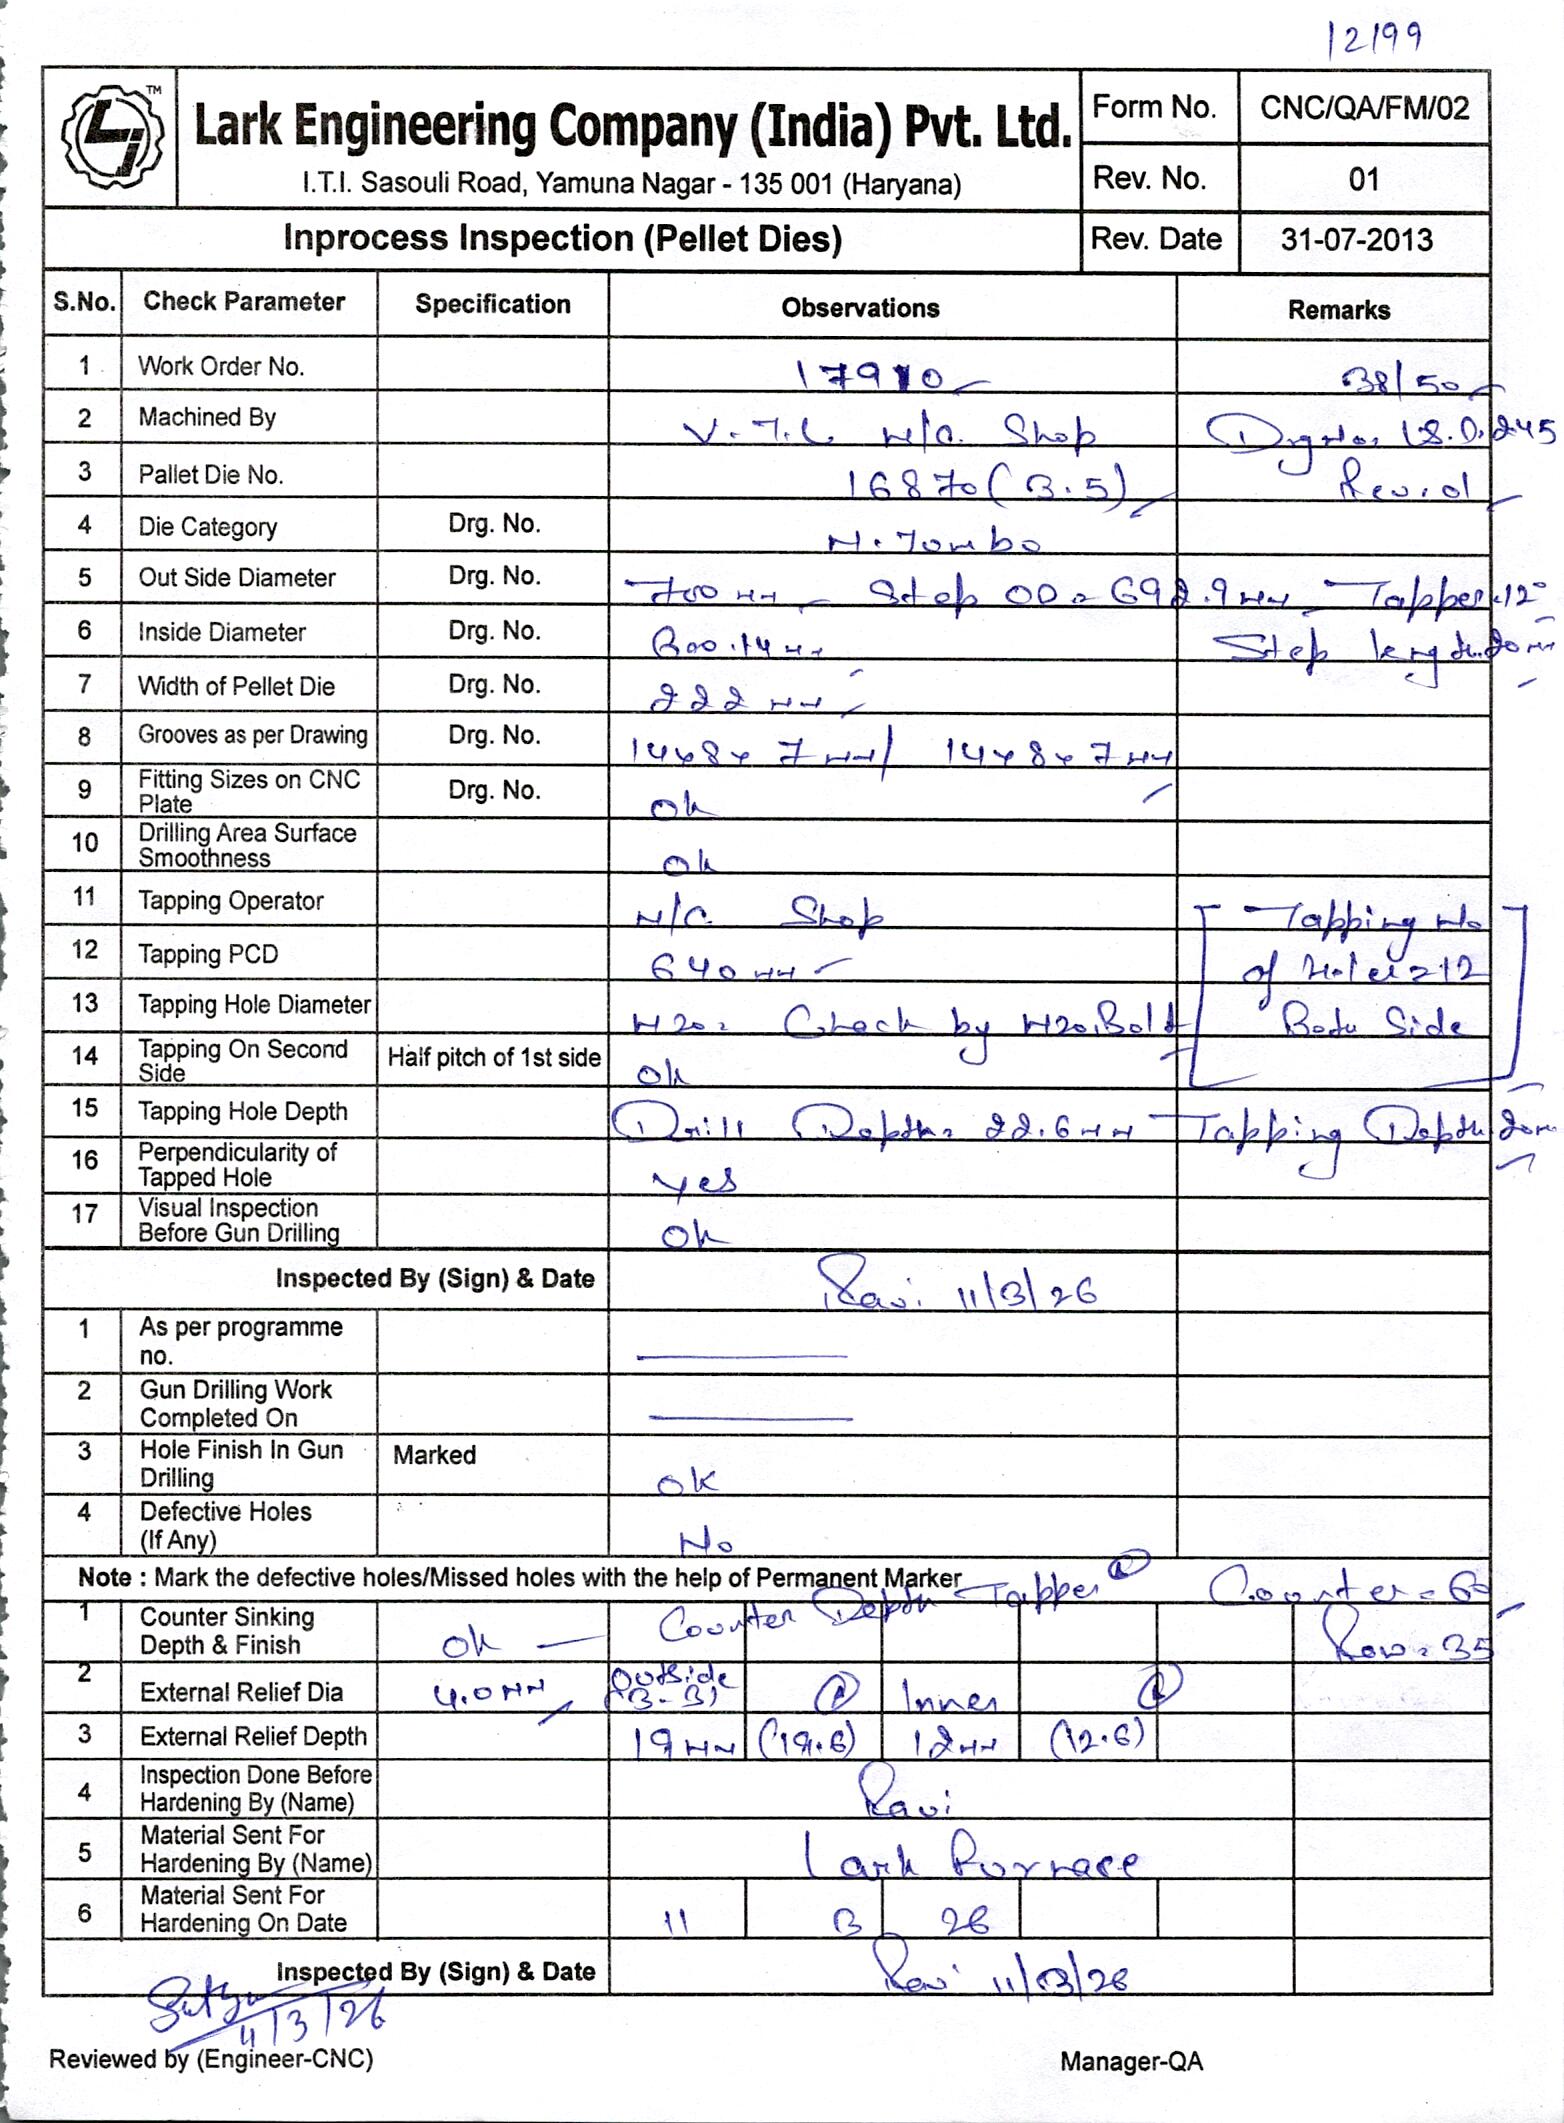 12199
TM
Lark Engineering Company (India) Pvt. Ltd.
I.T.I. Sasouli Road, Yamuna Nagar - 135 001 (Haryana)
Form No. CNC/QA/FM/02
Rev. No. 01
Inprocess Inspection (Pellet Dies) Rev. Date 31-07-2013
S.No. Check Parameter Specification Observations Remarks
1 Work Order No. 17910 38/50
2 Machined By V.T.L M/C. Shop Drg No.
3 Pallet Die No. 16870 (3.5) Rev. 01
4 Die Category Drg. No. M. Jombo
5 Out Side Diameter Drg. No. 700 MM Step OD = 692.9 MM Tapper 12°
6 Inside Diameter Drg. No. 600.14 MM Step length 20 MM
7 Width of Pellet Die Drg. No. 222 MM
8 Grooves as per Drawing Drg. No. 14x8x7 MM / 14x8x7 MM
9 Fitting Sizes on CNC Plate Drg. No. Ok
10 Drilling Area Surface Smoothness Ok
11 Tapping Operator M/C. Shop Tapping No
12 Tapping PCD 640 MM of Holes = 12
13 Tapping Hole Diameter M20 = Check by M20 Bolt Both Side
14 Tapping On Second Side Half pitch of 1st side Ok
15 Tapping Hole Depth Drill Depth = 22.6 MM Tapping Depth 20 MM
16 Perpendicularity of Tapped Hole Yes
17 Visual Inspection Before Gun Drilling Ok
Inspected By (Sign) & Date Ravi 11/3/26
1 As per programme no.
2 Gun Drilling Work Completed On
3 Hole Finish In Gun Drilling Marked OK
4 Defective Holes (If Any) No
Note : Mark the defective holes/Missed holes with the help of Permanent Marker
Counter Depth Tapper Counter = 60
1 Counter Sinking Depth & Finish Ok Row = 35
2 External Relief Dia 4.0 MM Outside (3-3) Inner
3 External Relief Depth 19 MM (19.6) 12 MM (12.6)
4 Inspection Done Before Hardening By (Name) Ravi
5 Material Sent For Hardening By (Name) Lark Furnace
6 Material Sent For Hardening On Date 11 3 26
Inspected By (Sign) & Date Ravi 11/3/26
11/3/26
Reviewed by (Engineer-CNC) Manager-QA